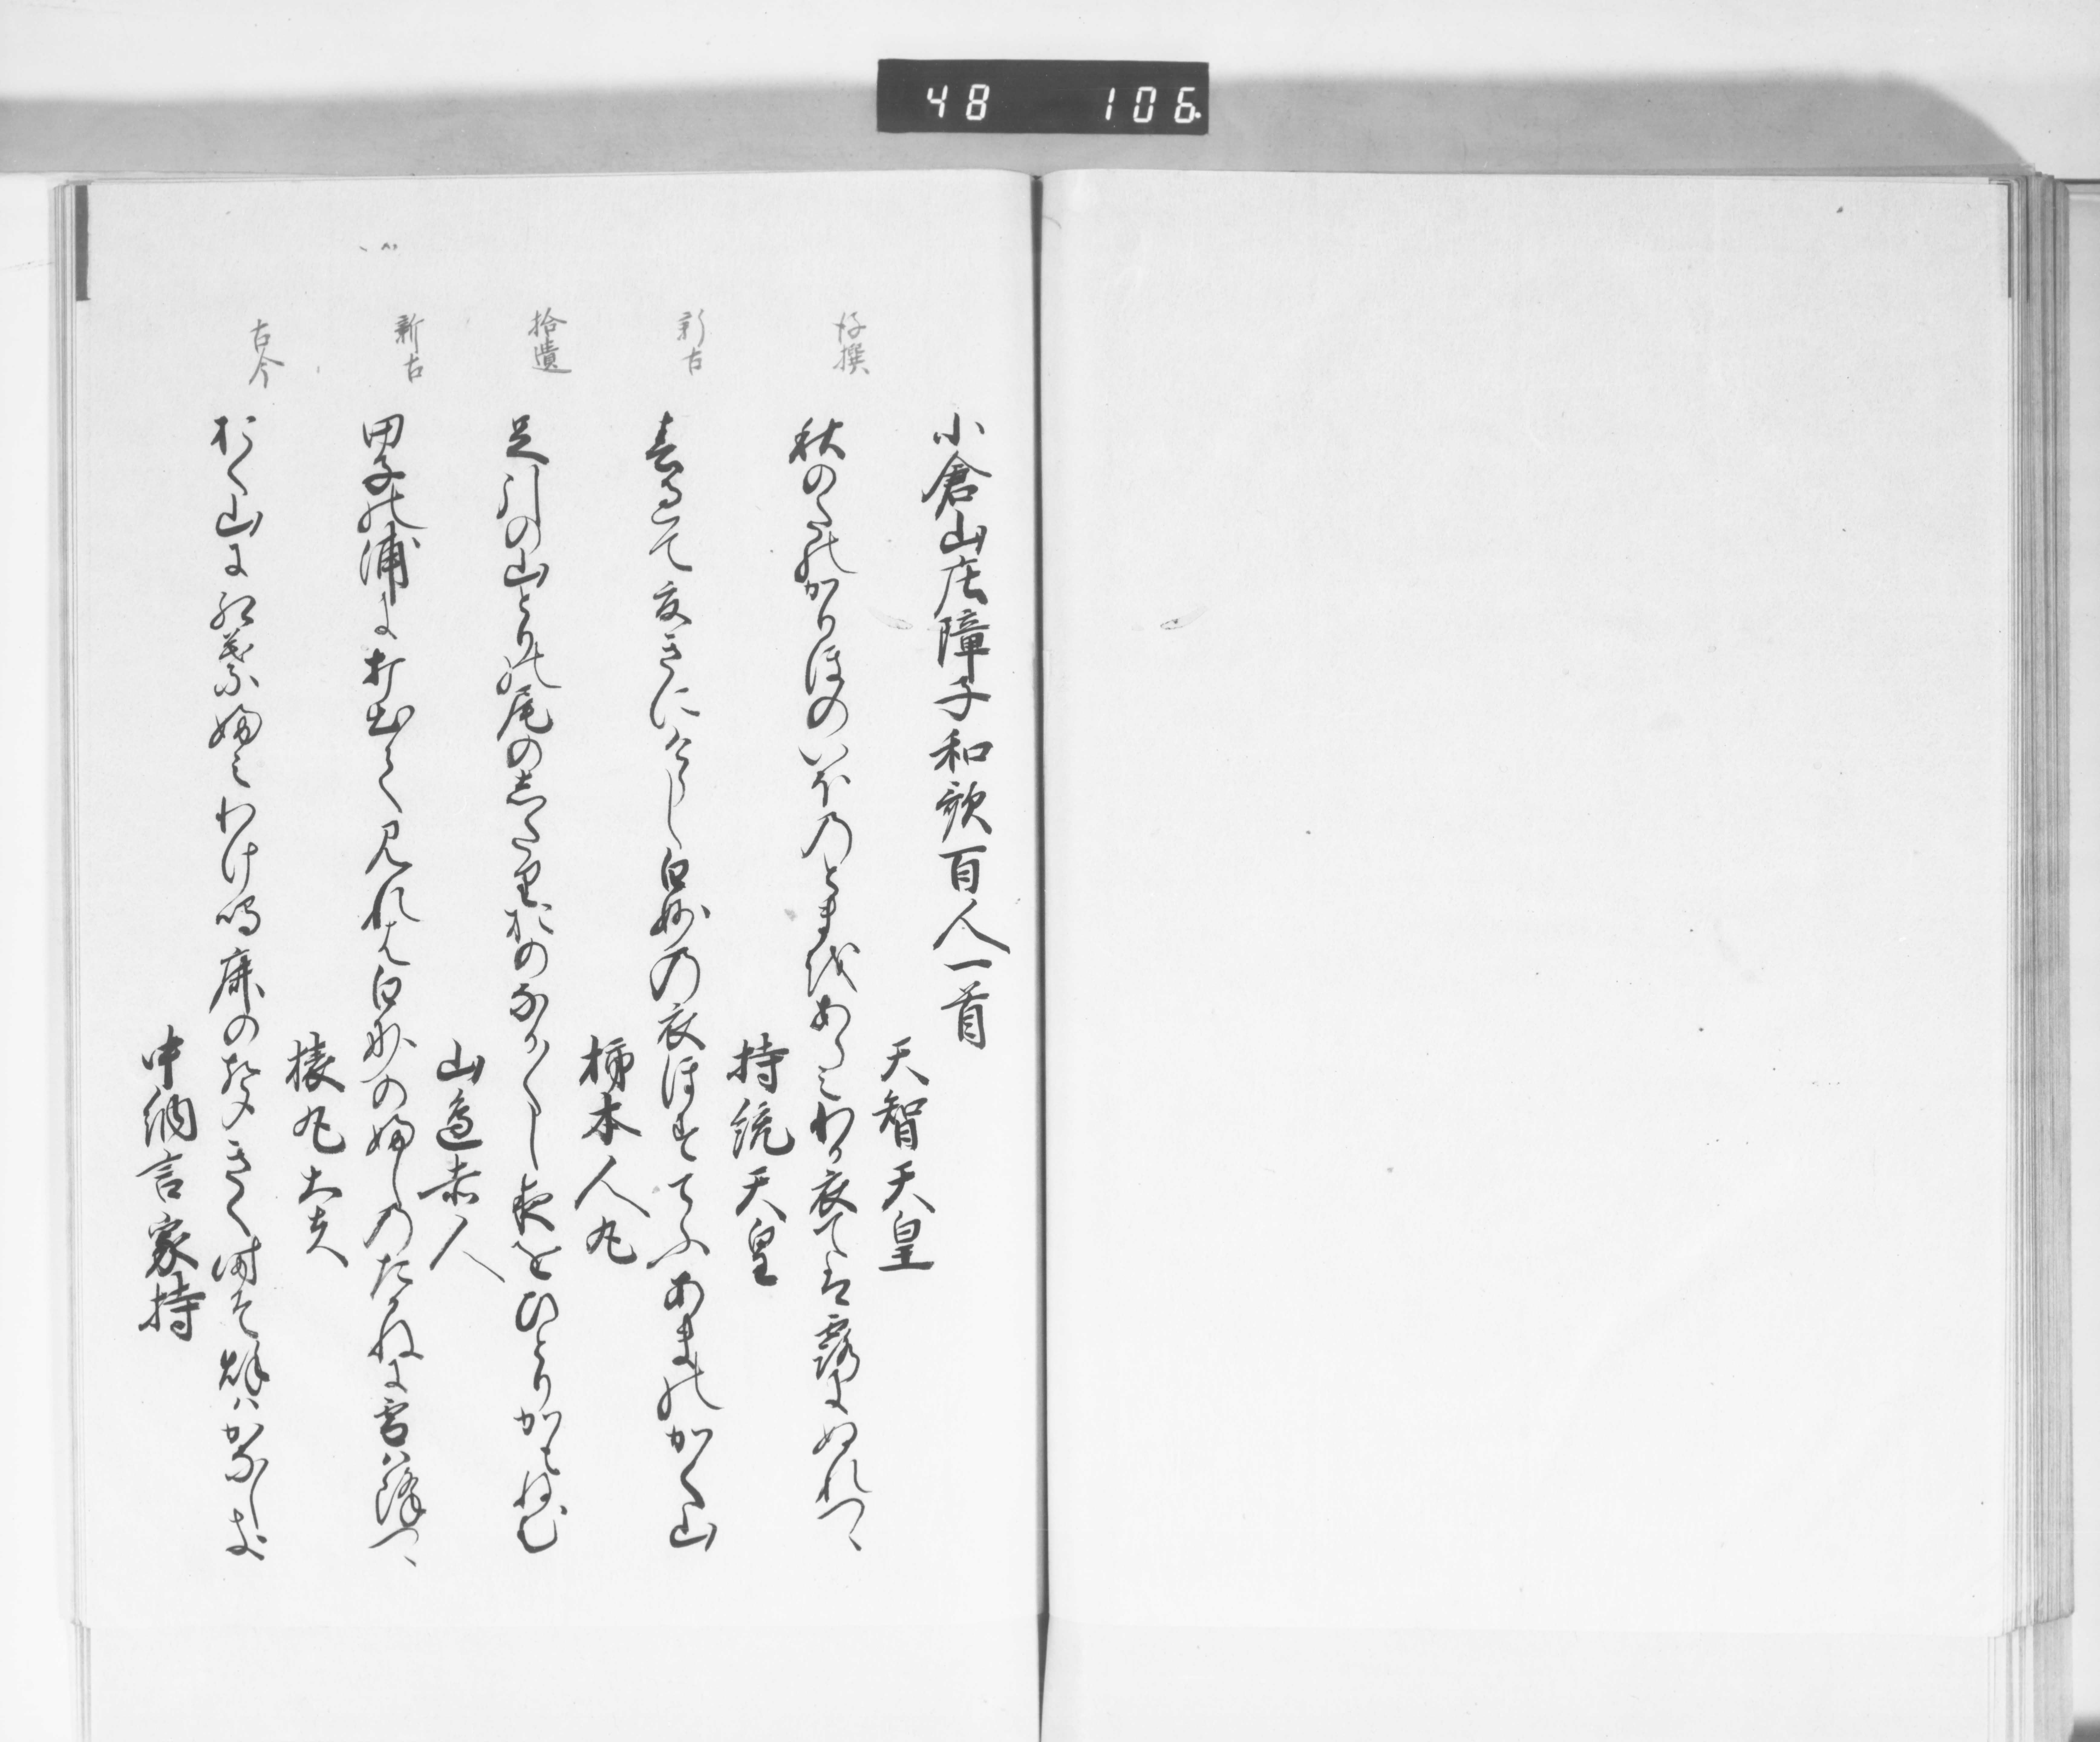 48 106
小倉山庄障子和歌百人一首
天智天皇
後撰
秋のたのかりほのいほのとまをあらみわか衣ては露にぬれつゝ
持統天皇
新古
春過て夏きにけらし白妙の衣ほすてふあまのかく山
柿本人丸
拾遺
足引の山とりの尾のしたりおのなか〳〵し夜をひとりかもねむ
山邊赤人
新古
田子の浦に打出て見れは白妙のふしのたかねに雪は降つゝ
猿丸大夫
古今
おく山に紅葉ふみわけ鳴鹿の声きく時そ秋はかなしき
中納言家持